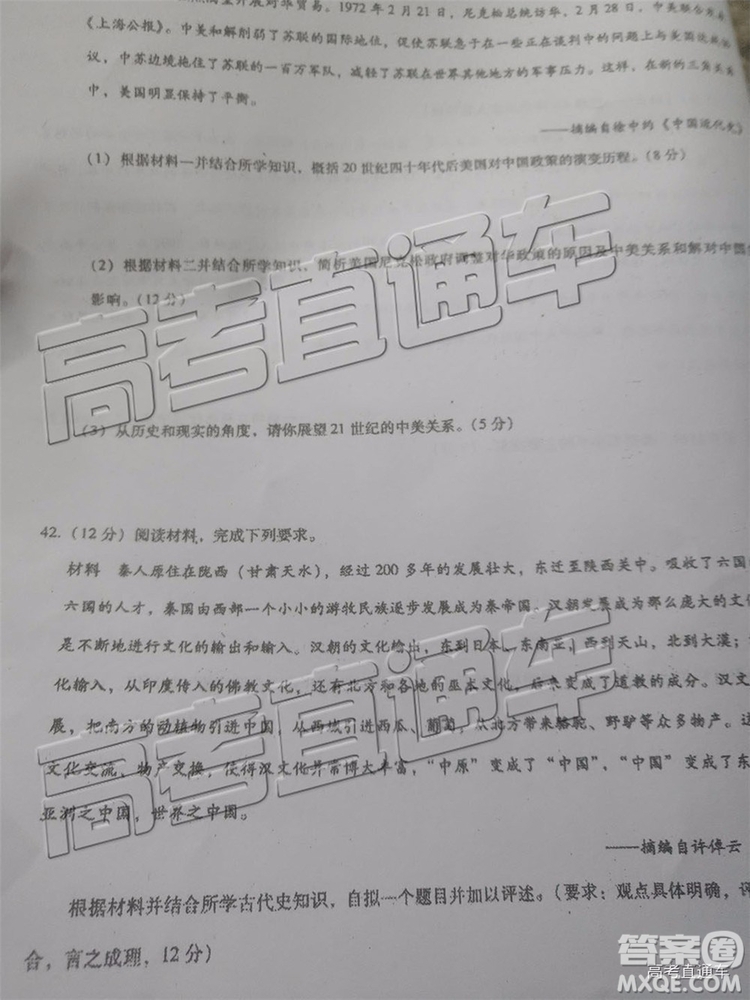 开展对华贸易。1972年2月21日，尼克松总统访华，2月28日，中美联合发
《上海公报》。中美和解削弱了苏联的国际地位，促使苏联急于在一些正在谈判中的问题上与美国达成
议，中苏边境拖住了苏联的一百万军队，减轻了苏联在世界其他地方的军事压力。这样，在新的三角关
中，美国明显保持了平衡。
——摘编自徐中约《中国近代史》
（1）根据材料一并结合所学知识，概括20世纪四十年代后美国对中国政策的演变历程。（8分）
（2）根据材料二并结合所学知识，简析美国尼克松政府调整对华政策的原因及中美关系和解对中国
影响。（12分）
高考直通车
（3）从历史和现实的角度，请你展望21世纪的中美关系。（5分）
42.（12分）阅读材料，完成下列要求。
材料 秦人原住在陇西（甘肃天水），经过200多年的发展壮大，东迁至陕西关中。吸收了六国
六国的人才，秦国由西部一个小小的游牧民族逐步发展成为秦帝国。汉朝发展成为那么庞大的文
是不断地进行文化的输出和输入。汉朝的文化输出，东到日本、东南亚，西到天山，北到大漠；
化输入，从印度传入的佛教文化，还有北方和各地的巫术文化，后来变成了道教的成分。汉文
展，把南方的动植物引进中国，从西域引进西瓜、葡萄，从北方带来骆驼、野驴等众多物产。这
高考直通车
文化交流，物产交换，使得汉文化异常博大丰富，“中原”变成了“中国”，“中国”变成了东
亚洲之中国，世界之中国。
——摘编自许倬云
根据材料并结合所学古代史知识，自拟一个题目并加以评述。（要求：观点具体明确，评
合，言之成理，12分）
答案圈
高考直通车
MXQE.COM